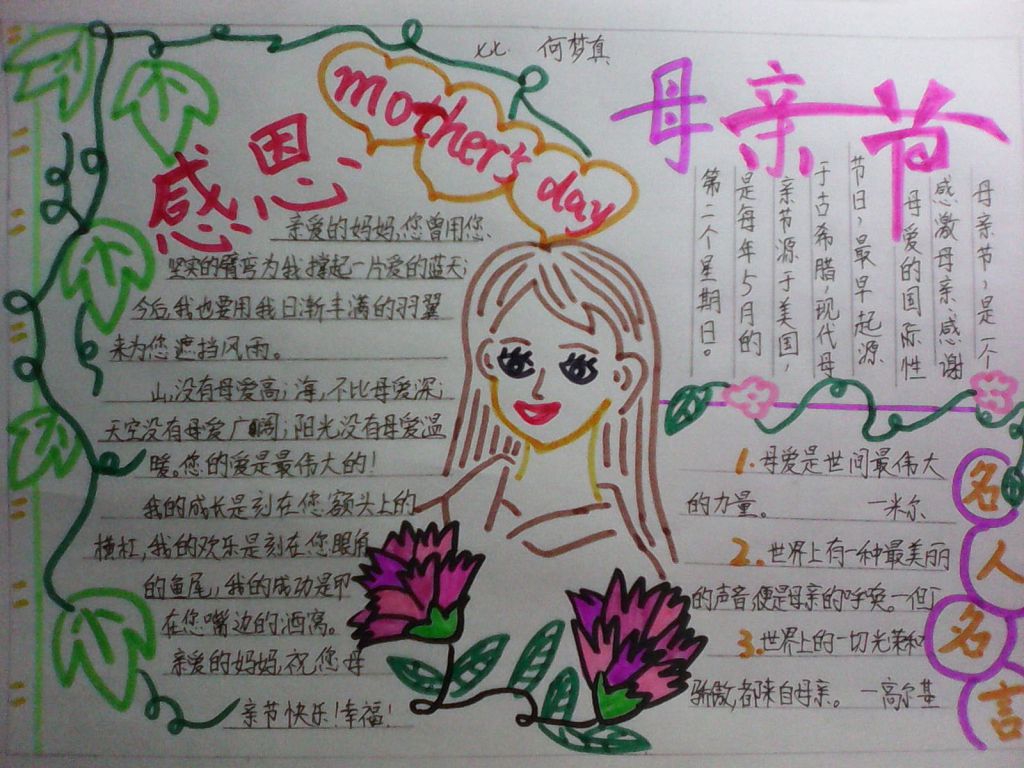 xx. 何梦真
mother's day
母亲节
感恩
亲爱的妈妈,您曾用您
坚实的臂弯为我撑起一片爱的蓝天;
今后,我也要用我日渐丰满的羽翼
来为您遮挡风雨。
山,没有母爱高;海,不比母爱深;
天空没有母爱广阔;阳光没有母爱温
暖。您的爱是最伟大的!
我的成长是刻在您额头上的
横杠,我的欢乐是刻在您眼角
的鱼尾,我的成功是印
在您嘴边的酒窝。
亲爱的妈妈,祝您母
亲节快乐!幸福!
母亲节,是一个
感激母亲、感谢
母爱的国际性
节日,最早起源
于古希腊,现代母
亲节源于美国,
是每年5月的
第二个星期日。
名人名言
1.母爱是世间最伟大
的力量。 —米尔
2.世界上有一种最美丽
的声音,便是母亲的呼唤。—但丁
3.世界上的一切光荣和
骄傲,都来自母亲。 —高尔基